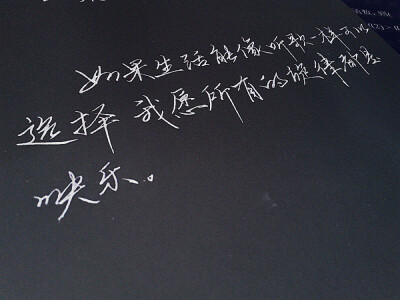 如果生活能像听歌一样可以
选择 我愿所有的旋律都是
快乐。